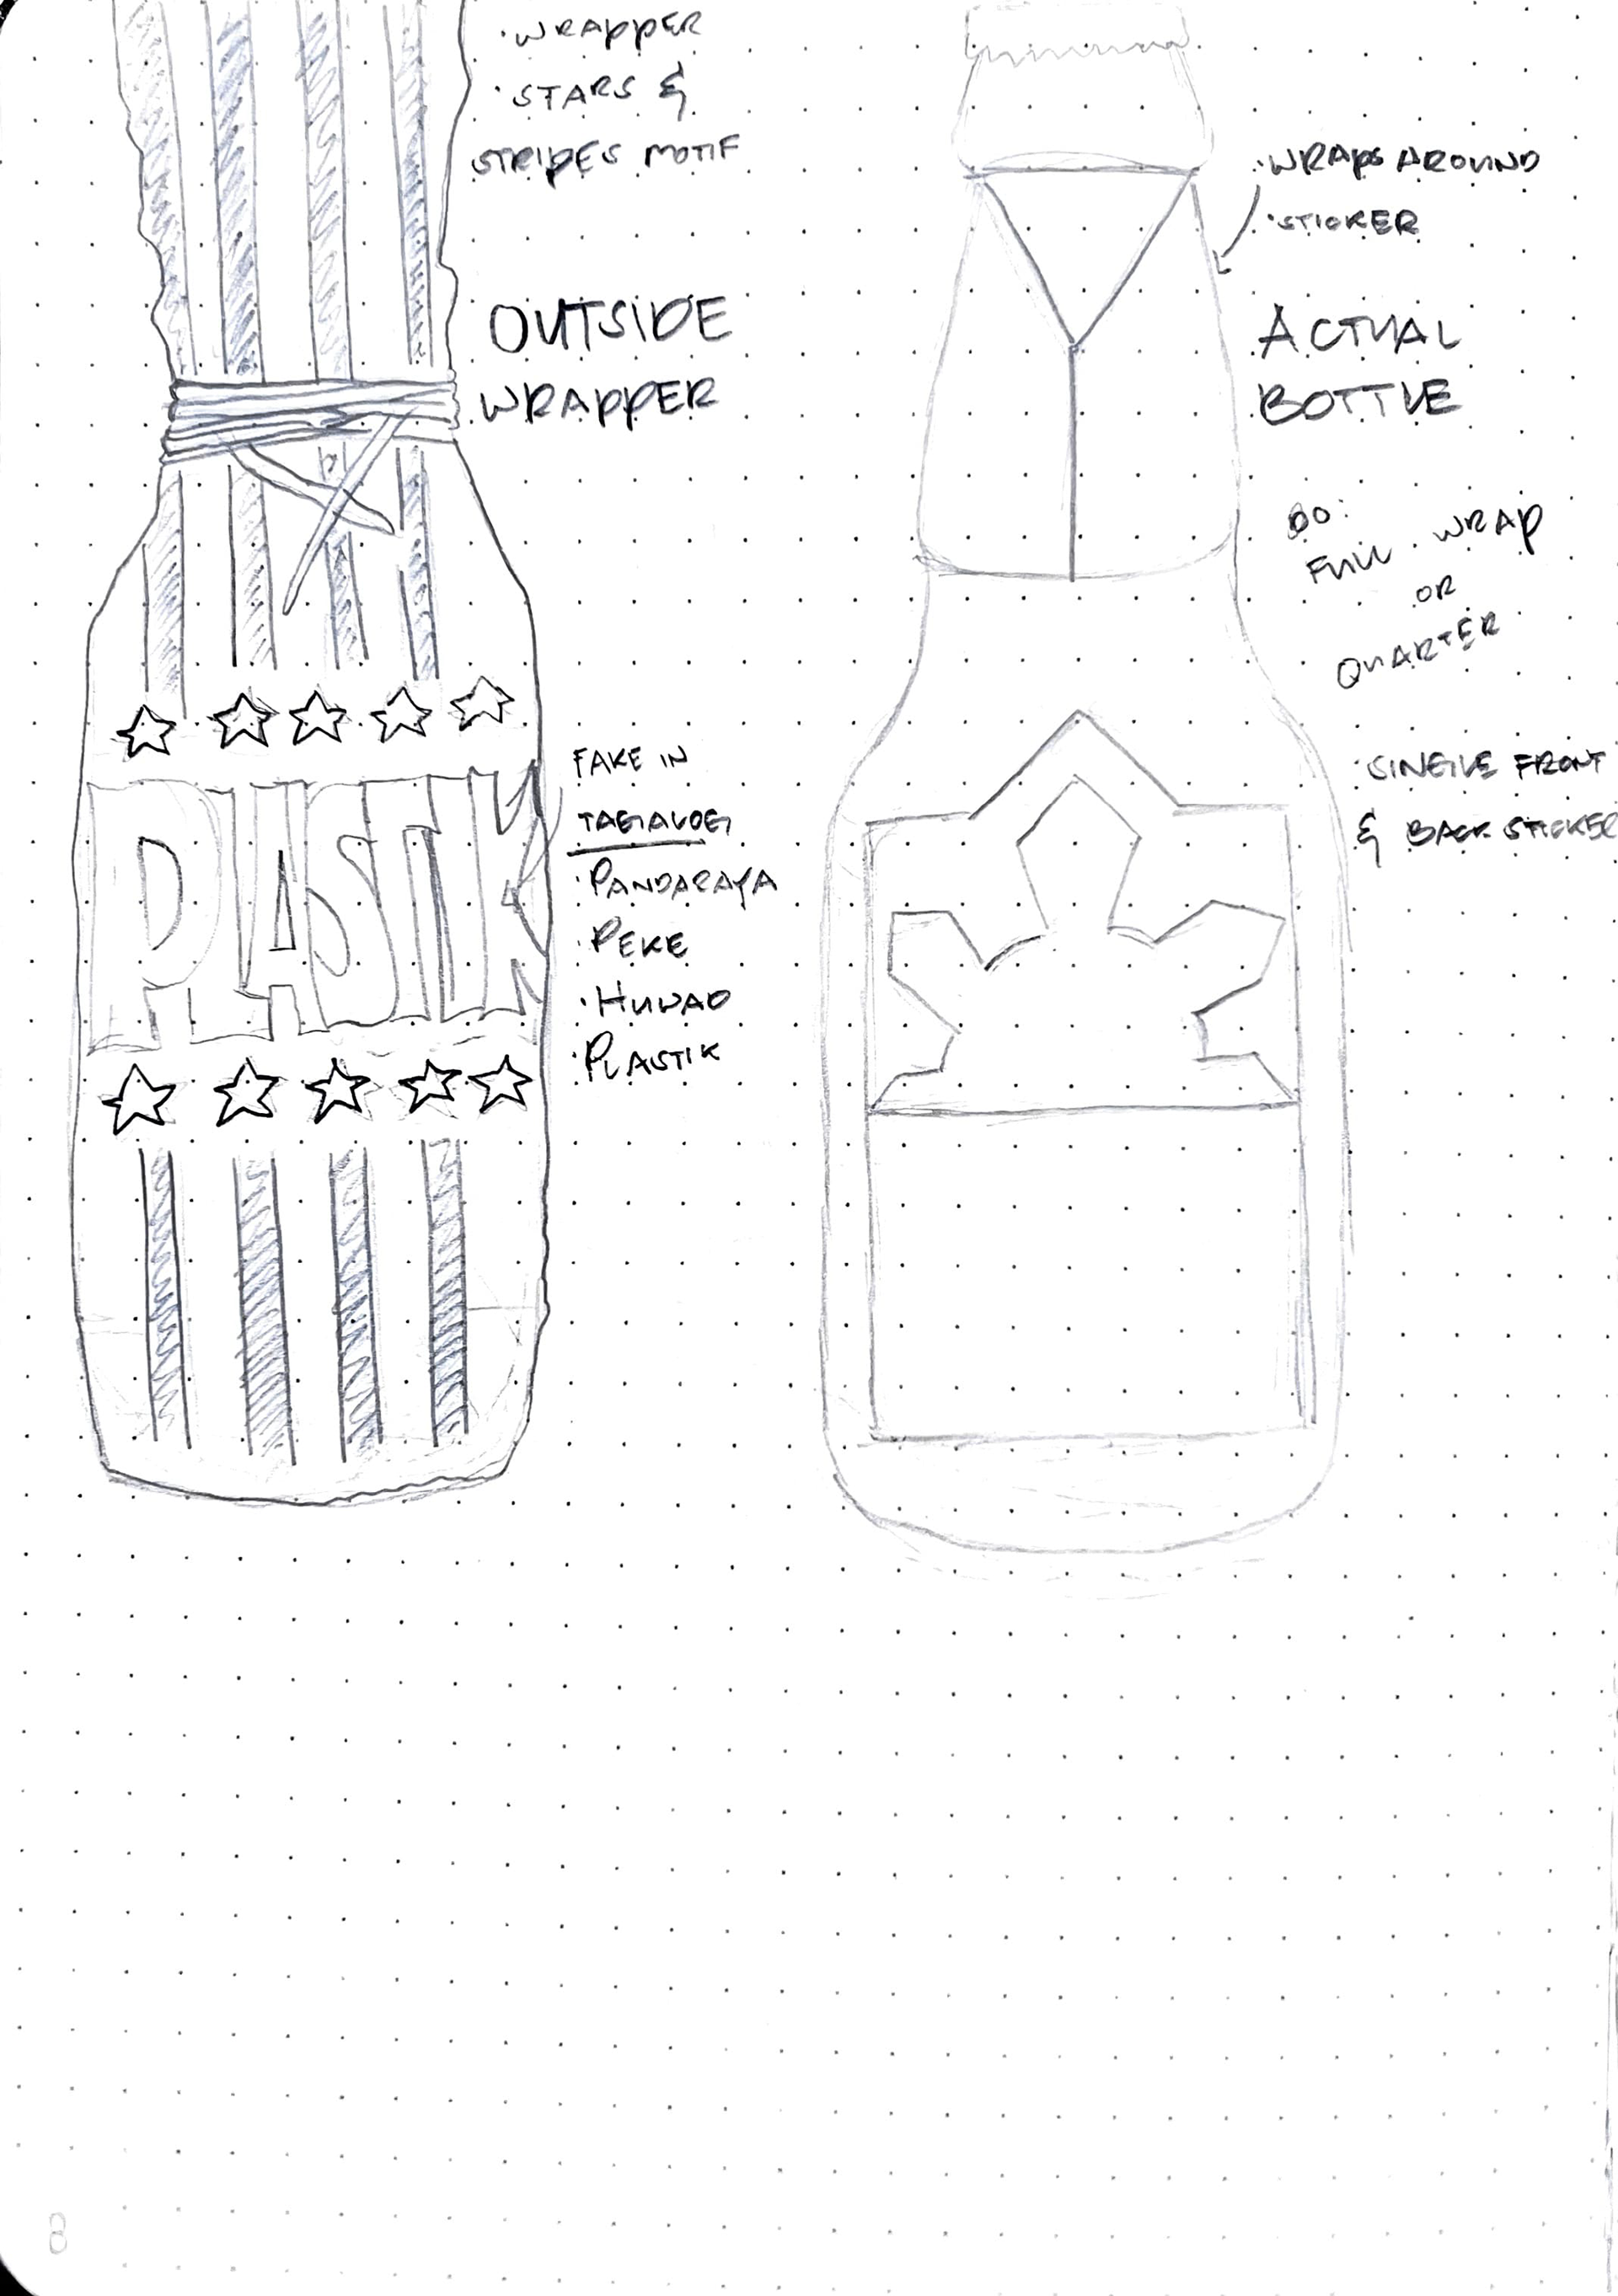 · WRAPPER
· STARS &
STRIPES MOTIF
OUTSIDE
WRAPPER
PLASTIK
FAKE IN
TAGALOG
· PANDARAYA
· PEKE
· HUWAD
· PLASTIK
· WRAPS AROUND
· STICKER
ACTUAL
BOTTLE
DO:
FULL WRAP
OR
QUARTER
· SINGLE FRONT
& BACK STICKER
8